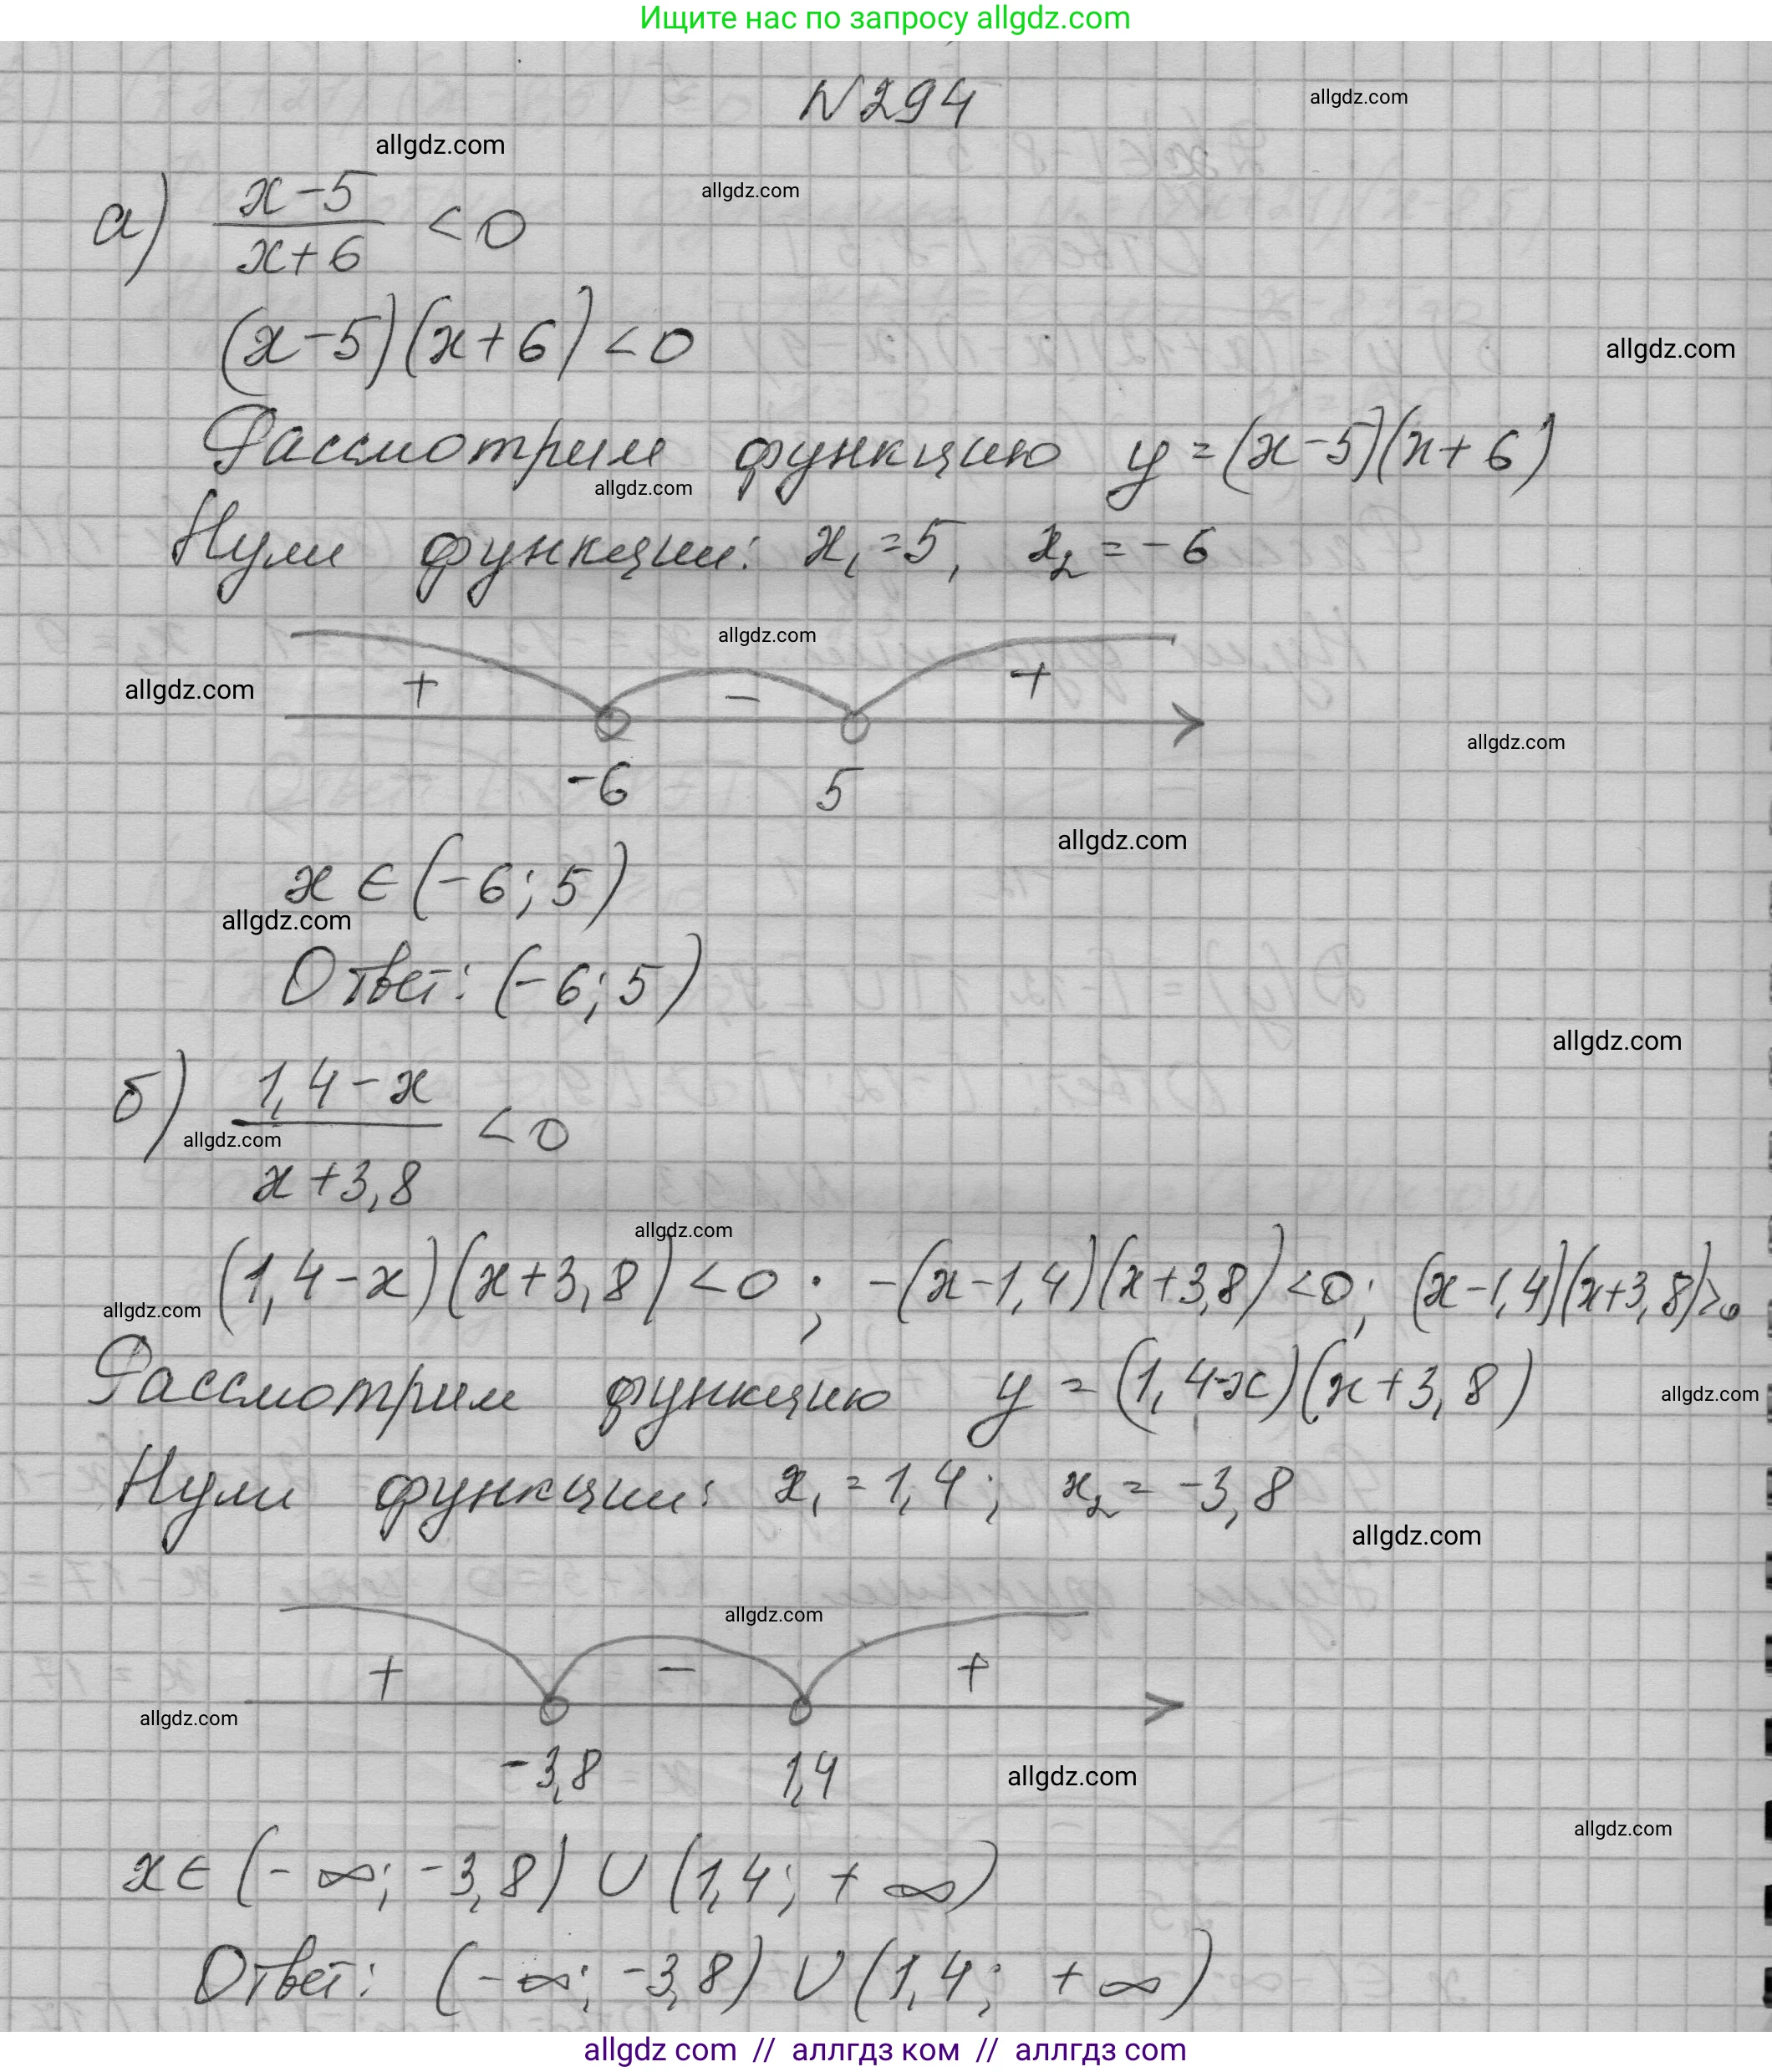 Ищите нас по запросу allgdz.com
N294
allgdz.com
allgdz.com
allgdz.com
а) (x-5)/(x+6) <0
(x-5)(x+6)<0
allgdz.com
Рассмотрим функцию y=(x-5)(x+6)
allgdz.com
Нули функции: x₁=5, x₂=-6
allgdz.com
allgdz.com
+ - +
allgdz.com
-6 5
allgdz.com
x∈(-6;5)
allgdz.com
Ответ: (-6;5)
allgdz.com
б) (1,4-x)/(x+3,8) <0
allgdz.com
allgdz.com
(1,4-x)(x+3,8)<0; -(x-1,4)(x+3,8)<0; (x-1,4)(x+3,8)>0
allgdz.com
Рассмотрим функцию y=(1,4-x)(x+3,8)
allgdz.com
Нули функции: x₁=1,4; x₂=-3,8
allgdz.com
allgdz.com
+ - +
allgdz.com
-3,8 1,4
allgdz.com
allgdz.com
x∈(-∞; -3,8) ∪ (1,4; +∞)
Ответ: (-∞; -3,8) ∪ (1,4; +∞)
allgdz com // аллгдз ком // аллгдз com